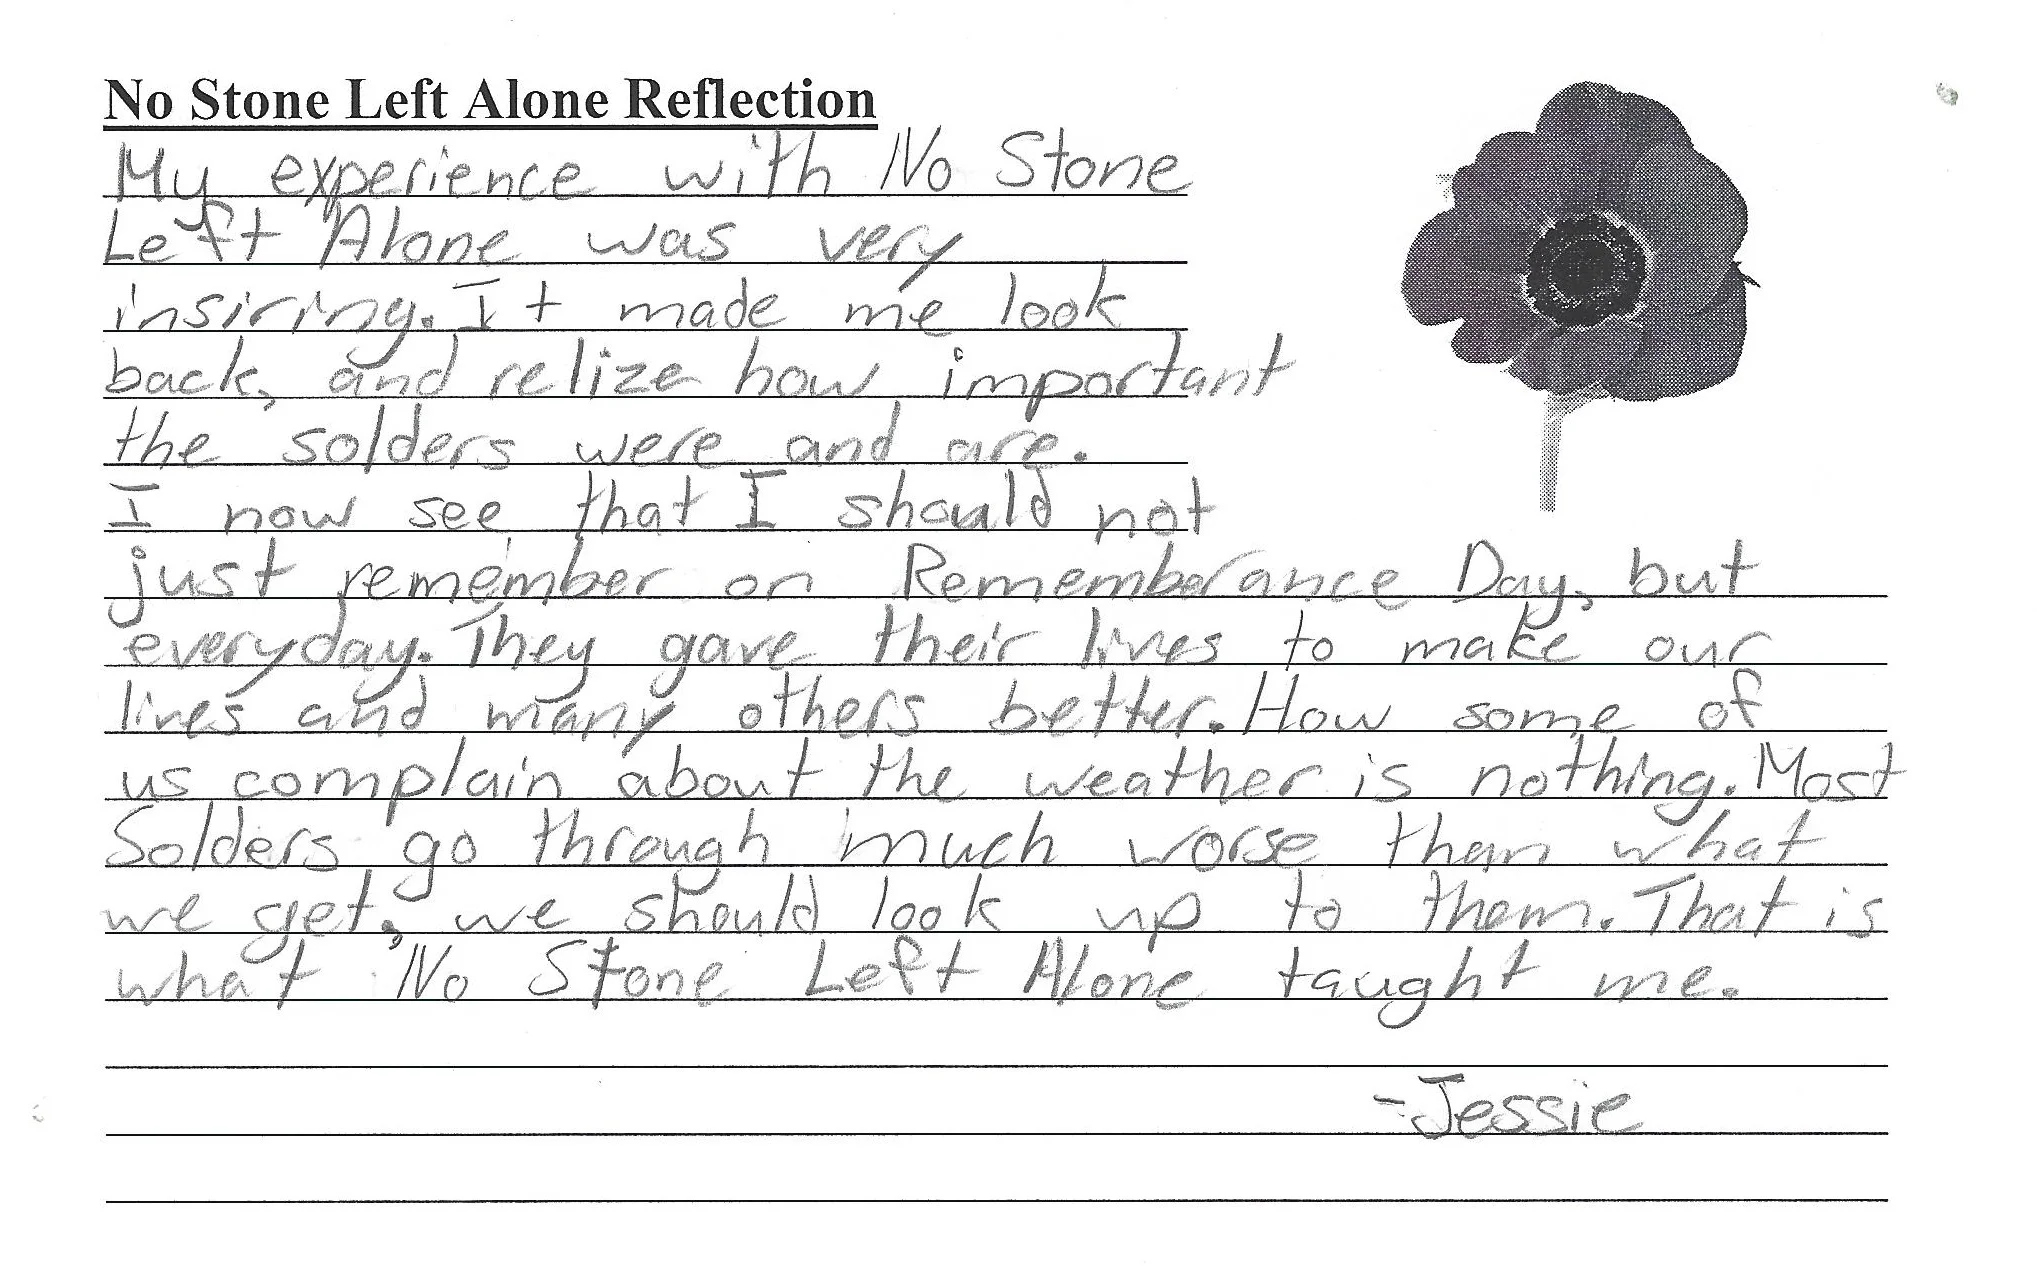 No Stone Left Alone Reflection
My experience with No Stone
Left Alone was very
insiring. It made me look
back, and relize how important
the solders were and are.
I now see that I should not
just remember on Rememberance Day, but
everyday. They gave their lives to make our
lives and many others better. How some of
us complain about the weather is nothing. Most
Solders go through much worse then what
we get, we should look up to them. That is
what No Stone Left Alone taught me.
-Jessie